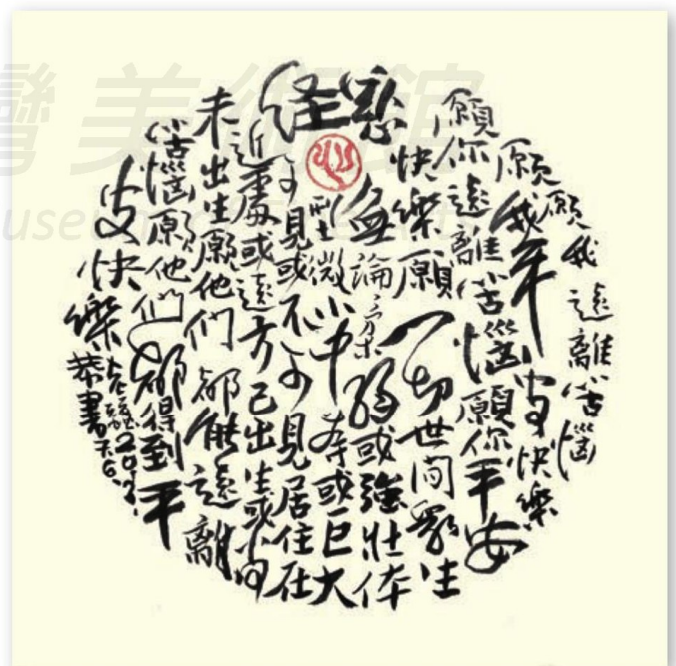 慈経
願我遠離苦惱
願我平安快樂
願你遠離苦惱願你平安
快樂願一切世間眾生
無論柔弱或強壯体
型微小中等或巨大
可見或不可見居住在
近處或遠方已出生或尚
未出生願他們都能遠離
苦惱願他們都得到平
安快樂
恭書
灣美術館
useum